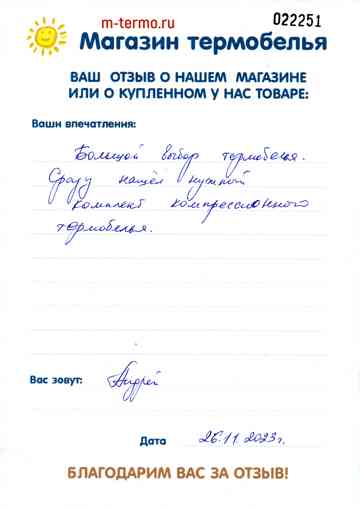 m-termo.ru
022251
Магазин термобелья
ВАШ ОТЗЫВ О НАШЕМ МАГАЗИНЕ
ИЛИ О КУПЛЕННОМ У НАС ТОВАРЕ:
Ваши впечатления:
Большой выбор термобелья.
Сразу нашёл нужный
комплект компрессионного
термобелья.
Вас зовут: Андрей
Дата 26.11.2023г.
БЛАГОДАРИМ ВАС ЗА ОТЗЫВ!